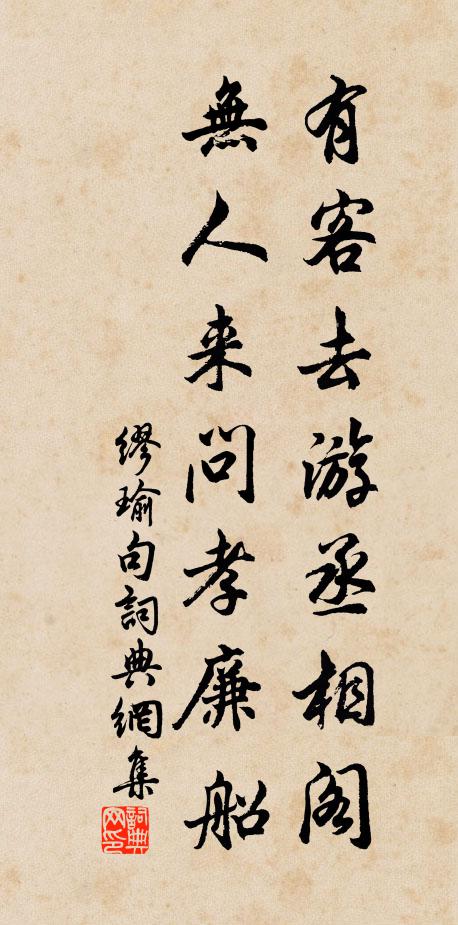 有客去游丞相阁
無人来問孝廉船
繆瑜句詞典網集
詞典网印